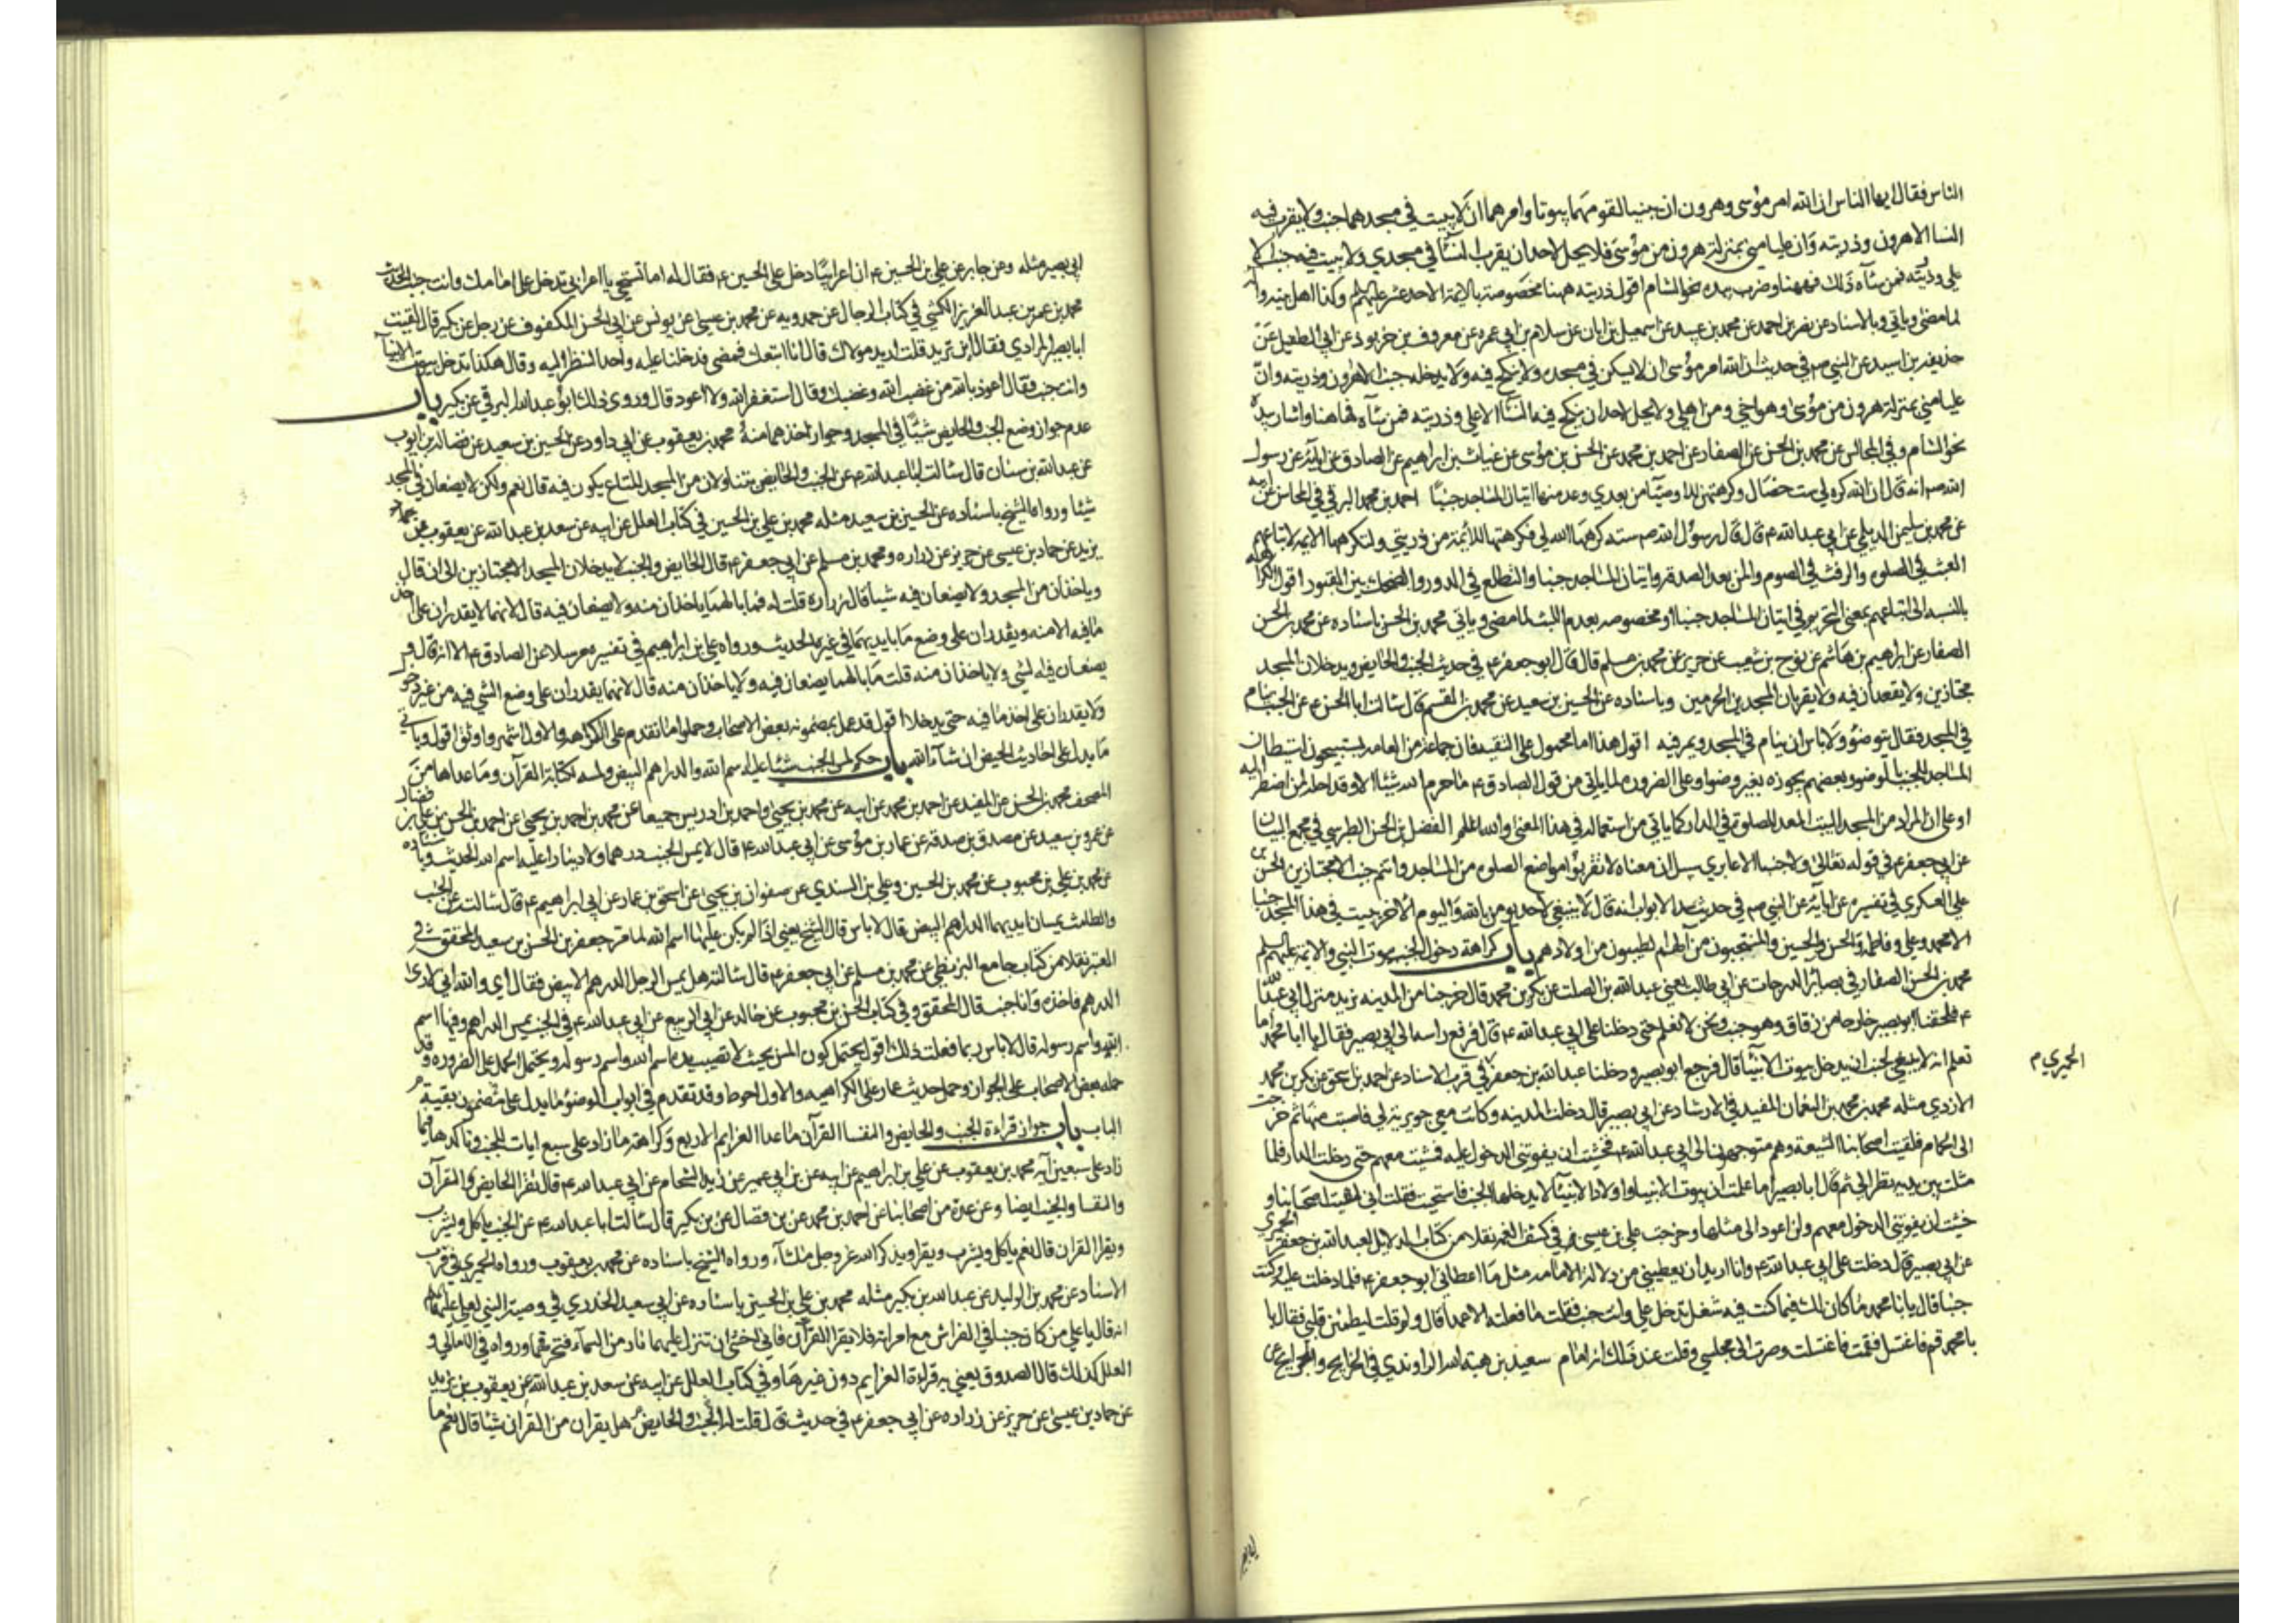 الناس فقال ايها الناس ان الله امر موسى وهرون ان يبنيا لقومهما بيوتا وامرهما ان لا يبيت في مسجدهما جنب ولا يقرب فيه
النسا الا هرون وذريته وان عليا مني بمنزلة هرون من موسى فلا يحل لاحد ان يقرب النسآ في مسجدي ولا يبيت فيه جنب الا
علي وذريته فمن سآه ذلك فههنا وضرب بيده نحو الشام اقول ذريته هنا مخصوصة بالايمة الاحد عشر عليهم وكذا اهل بيته
لما مضى وياتي وبالاسناد عن نصر بن احمد عن محمد بن عبيد عن اسمعيل بن ابان عن سلام بن ابي عمره عن معروف بن خربوذ عن ابي الطفيل عن
حذيفه بن اسيد عن النبي ص في حديث ان الله امر موسى ان لا يسكن في مسجده ولا ينكح فيه ولا يدخله جنب الا هرون وذريته وان
عليا مني بمنزلة هرون من موسى وهو اخي ومن اهلي ولا يحل لاحد ان ينكح فيه النسآ الا علي وذريته فمن سآه فهاهنا واشار بيده
نحو الشام وفي المجالس عن محمد بن الحسن عن الصفار عن احمد بن محمد عن الحسن بن موسى عن غياث بن ابراهيم عن الصادق عن ابائه عن رسول
الله ص انه قال ان الله كره لي ست خصال وكرهتهن للاوصيآ من بعدي وعد منها اتيان المساجد جنبا احمد بن محمد البرقي في المحاسن عن ابيه
عن محمد بن سليمن الديلمي عن ابي عبد الله ع قال قال رسول الله ص ستة كرهها الله لي فكرهتها للائمة من ذريتي ولتكرهها الايمه لاتباعهم
العبث في الصلوه والرفث في الصوم والمن بعد الصدقه واتيان المساجد جنبا والتطلع في الدور والضحك بين القبور اقول الكراهه
بالنسبه الى اتباعهم بمعنى التحريم في اتيان المساجد جنبا او مخصوصه بعدم اللبث لما مضى وياتي محمد بن الحسن باسناده عن محمد بن الحسن
الصفار عن ابراهيم بن هاشم عن نوح بن شعيب عن حريز عن محمد بن مسلم قال قال ابو جعفر ع في حديث الجنب والحايض ويدخلان المسجد
مجتازين ولا يقعدان فيه ولا يقربان المسجدين الحرمين وباسناده عن الحسين بن سعيد عن محمد بن القسم قال سالت ابا الحسن ع عن الجنب ينام
في المسجد فقال يتوضؤ ولا باس ان ينام في المسجد ويمر فيه اقول هذا اما محمول على التقيه فان جماعة من العامه يستبيحون استيطان
المساجد للجنب بالوضوء وبعضهم يجوزه بغير وضوا وعلى الضروره لما ياتي من قول الصادق ع ما حرم الله شيئا الا وقد احله لمن اضطر اليه
او على ان المراد من المسجد البيت المعد للصلوة في الدار كما ياتي من استعماله في هذا المعنى والله اعلم الفضل بن الحسن الطبرسي في مجمع البيان
عن ابي جعفر ع في قوله تعالى ولا جنبا الا عابري سبيل ان معناه لا تقربوا مواضع الصلوه من المساجد وانتم جنب الا مجتازين الحسن بن
علي العسكري في تفسيره عن ابآئه عن النبي ص في حديث سد الابواب انه قال لا ينبغي لاحد يومن بالله واليوم الاخر يبيت في هذا المسجد جنبا
الا محمد وعلي وفاطمة والحسن والحسين والمنتجبون من آلهم الطيبون من اولادهم باب كراهة دخول الجنب بيوت النبي والايمة عليهم السلم
محمد بن الحسن الصفار في بصائر الدرجات عن ابي طالب يعني عبد الله بن الصلت عن بكر بن محمد قال خرجنا من المدينه نريد منزل ابي عبد الله
ع فلحقنا ابو بصير خارجا من زقاق وهو جنب ونحن لا نعلم حتى دخلنا على ابي عبد الله ع قال فرفع راسه الى ابي بصير فقال يا ابا محمد اما
تعلم انه لا ينبغي لجنب ان يدخل بيوت الانبيآ قال فرجع ابو بصير ودخلنا عبد الله بن جعفر في قرب الاسناد عن احمد بن اسحق عن بكر بن محمد
الحميري م
الازدي مثله محمد بن محمد بن النعمان المفيد في الارشاد عن ابي بصير قال دخلت المدينه وكانت معي جويرية لي فاصبت منها ثم خرجت
الى الحمام فلقيت اصحابنا الشيعة وهم متوجهون الى ابي عبد الله ع فخشيت ان يفوتني الدخول عليه فمشيت معهم حتى دخلت الدار فلما
مثلت بين يديه نظر الي ثم قال يا ابا بصير اما علمت ان بيوت الانبياء واولاد الانبيآ لا يدخلها الجنب فاستحييت فقلت اني لقيت اصحابنا و
خشيت ان يفوتني الدخول معهم ولن اعود الى مثلها وخرجت علي بن عيسى في كشف الغمه نقلا من كتاب الدلايل لعبد الله بن جعفر الحميري
عن ابي بصير قال دخلت على ابي عبد الله ع وانا اريد ان يعطيني من دلالة الامامه مثل ما اعطاني ابو جعفر ع فلما دخلت عليه وكنت
جنبا قال يا ابا محمد ما كان لك فيما كنت فيه شغل تدخل علي وانت جنب فقلت ما فعلته الا عمدا قال اولم تؤمن قلت بلى ولكن ليطمئن قلبي فقال يا
با محمد قم فاغتسل فقمت فاغتسلت وصرت الى مجلسي وقلت عند ذلك انه امام سعيد بن هبة الله الراوندي في الخرايج والجرايح عن
ابي بصير
ابي بصير مثله وعن جابر عن علي بن الحسين ع ان اعرابيا دخل على الحسين ع فقال له اما تستحي يا اعرابي تدخل على امامك وانت جنب الحديث
محمد بن عمر بن عبد العزيز الكشي في كتاب الرجال عن حمدويه عن محمد بن عيسى عن يونس عن ابي الحسن المكفوف عن رجل عن بكير قال لقيت
ابا بصير المرادي فقال اين تريد قلت اريد مولاك قال انا اتبعك فمضى فدخلنا عليه واحد النظر اليه وقال هكذا تدخل بيوت الانبيآ
وانت جنب فقال اعوذ بالله من غضب الله وغضبك وقال استغفر الله ولا اعود قال وروى ذلك ابو عبد الله البرقي عن بكير باب
عدم جواز وضع الجنب والحايض شيئا في المسجد وجواز اخذهما منه محمد بن يعقوب عن ابي داود عن الحسين بن سعيد عن فضاله بن ايوب
عن عبد الله بن سنان قال سالت ابا عبد الله ع عن الجنب والحايض يتناولان من المسجد المتاع يكون فيه قال نعم ولكن لا يضعان في المسجد
شيئا ورواه الشيخ باسناده عن الحسين بن سعيد مثله محمد بن علي بن الحسين في كتاب العلل عن ابيه عن سعد بن عبد الله عن يعقوب بن
يزيد عن حماد بن عيسى عن حريز عن زراره ومحمد بن مسلم عن ابي جعفر ع قال الحايض والجنب لا يدخلان المسجد الا مجتازين الى ان قال
وياخذان من المسجد ولا يضعان فيه شيا قال زراره قلت له فما بالهما ياخذان منه ولا يضعان فيه قال لانهما لا يقدران على اخذ
ما فيه الا منه ويقدران على وضع ما بايديهما في غيره الحديث ورواه علي بن ابراهيم في تفسيره مرسلا عن الصادق ع الا انه قال
يضعان فيه الشي ولا ياخذان منه قلت ما بالهما يضعان فيه ولا ياخذان منه قال لانهما يقدران على وضع الشي فيه من غير دخول
ولا يقدران على اخذ ما فيه حتى يدخلا اقول قد عمل بمضمونه بعض الاصحاب وحملوا ما تقدم على الكراهه والاول اشهر واوثق اقول وياتي
ما يدل على احاديث الحيض ان شآء الله باب حكم لمس الجنب شيئا عليه اسم الله والدراهم البيض ولمسه لكتابة القرآن وما عداها من
المصحف محمد بن الحسن عن المفيد عن احمد بن محمد عن ابيه عن محمد بن يحيى واحمد بن ادريس جميعا عن محمد بن احمد بن يحيى عن احمد بن الحسن بن علي بن فضال
عن عمرو بن سعيد عن مصدق بن صدقه عن عمار بن موسى عن ابي عبد الله ع قال لا يمس الجنب درهما ولا دينارا عليه اسم الله الحديث وباسناده
عن محمد بن علي بن محبوب عن محمد بن الحسين وعلي بن السندي عن صفوان بن يحيى عن اسحق بن عمار عن ابي ابراهيم ع قال سالت عن الجنب
والطامث يمسان بايديهما الدراهم البيض قال لا باس قال الشيخ يعني اذا لم يكن عليها اسم الله لما مر جعفر بن الحسن بن سعيد المحقق في
المعتبر نقلا من كتاب جامع البزنطي عن محمد بن مسلم عن ابي جعفر ع قال سالته هل يمس الرجل الدرهم الابيض فقال اي والله اني لاوتى
الدرهم فاخذه وانا جنب قال المحقق وفي كتاب الحسن بن محبوب عن خالد عن ابي الربيع عن ابي عبد الله ع في الجنب يمس الدراهم وفيها اسم
الله واسم رسوله قال لا باس ربما فعلت ذلك اقول يحتمل كون المس بحيث لا تصيب يده اسم الله واسم رسوله ويحتمل الحمل على الضروره وقد
حمله بعض الاصحاب على الجواز وحمل حديث عمار على الكراهيه والاول احوط وقد تقدم في ابواب الوضؤ ما يدل على مضمون بقية
الباب باب جواز قراءة الجنب والحايض والنفسا القرآن ما عدا العزايم الاربع وكراهة ما زاد على سبع ايات للجنب وتاكدها فيما
زاد على سبعين آيه محمد بن يعقوب عن علي بن ابراهيم عن ابيه عن بن ابي عمير عن زيد الشحام عن ابي عبد الله ع قال تقرا الحايض القرآن
والنفسا والجنب ايضا وعن عدة من اصحابنا عن احمد بن محمد عن بن فضال عن بن بكير قال سالت ابا عبد الله ع عن الجنب ياكل ويشرب
ويقرا القران قال نعم ياكل ويشرب ويقرا ويذكر الله عز وجل ما شآء ورواه الشيخ باسناده عن محمد بن يعقوب ورواه الحميري في قرب
الاسناد عن محمد بن الوليد عن عبد الله بن بكير مثله محمد بن علي بن الحسين باسناده عن ابي سعيد الخدري في وصية النبي لعلي عليهما السلم
انه قال يا علي من كان جنبا في الفراش مع امراته فلا يقرا القرآن فاني اخشى ان تنزل عليهما نار من السمآء فتحرقهما ورواه في الامالي و
العلل كذلك قال الصدوق يعني به قراءة العزايم دون غيرها وفي كتاب العلل عن ابيه عن سعد بن عبد الله عن يعقوب بن يزيد
عن حماد بن عيسى عن حريز عن زراره عن ابي جعفر ع في حديث قال قلت له الجنب والحايض هل يقران من القران شيئا قال نعم ما